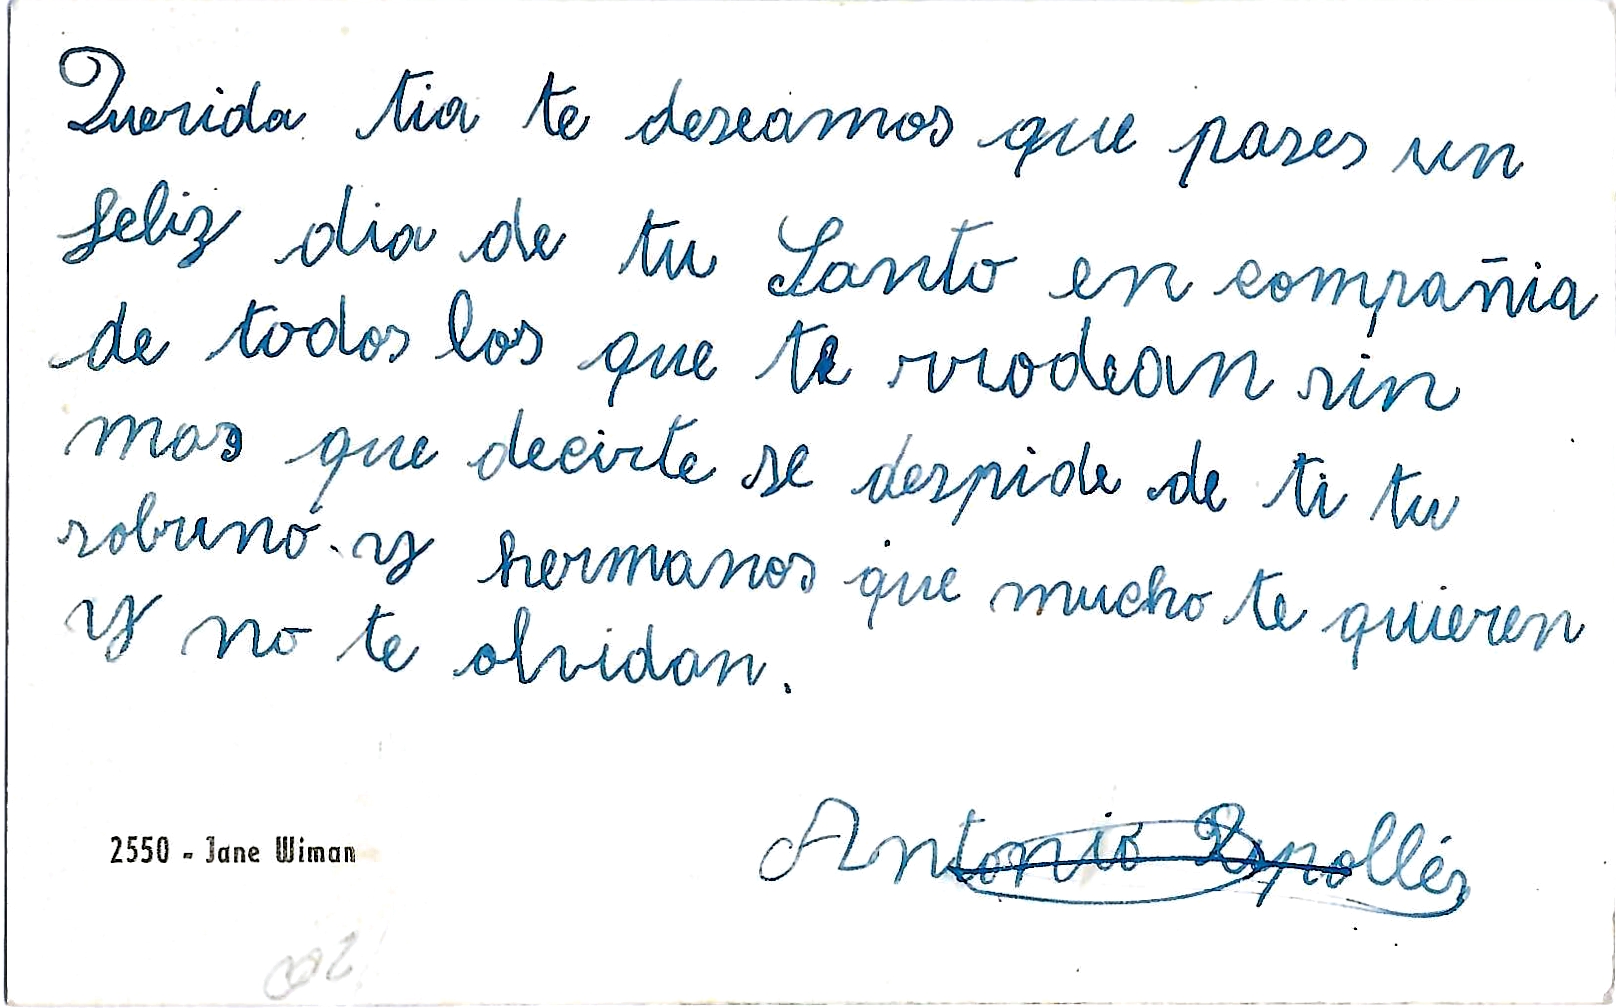 Querida tia te deseamos que pases un
feliz dia de tu Santo en compañia
de todos los que te rrodean sin
mas que decirte se despide de ti tu
sobrino y hermanos que mucho te quieren
y no te olvidan.
Antonio Repollés
2550 - Jane Wiman